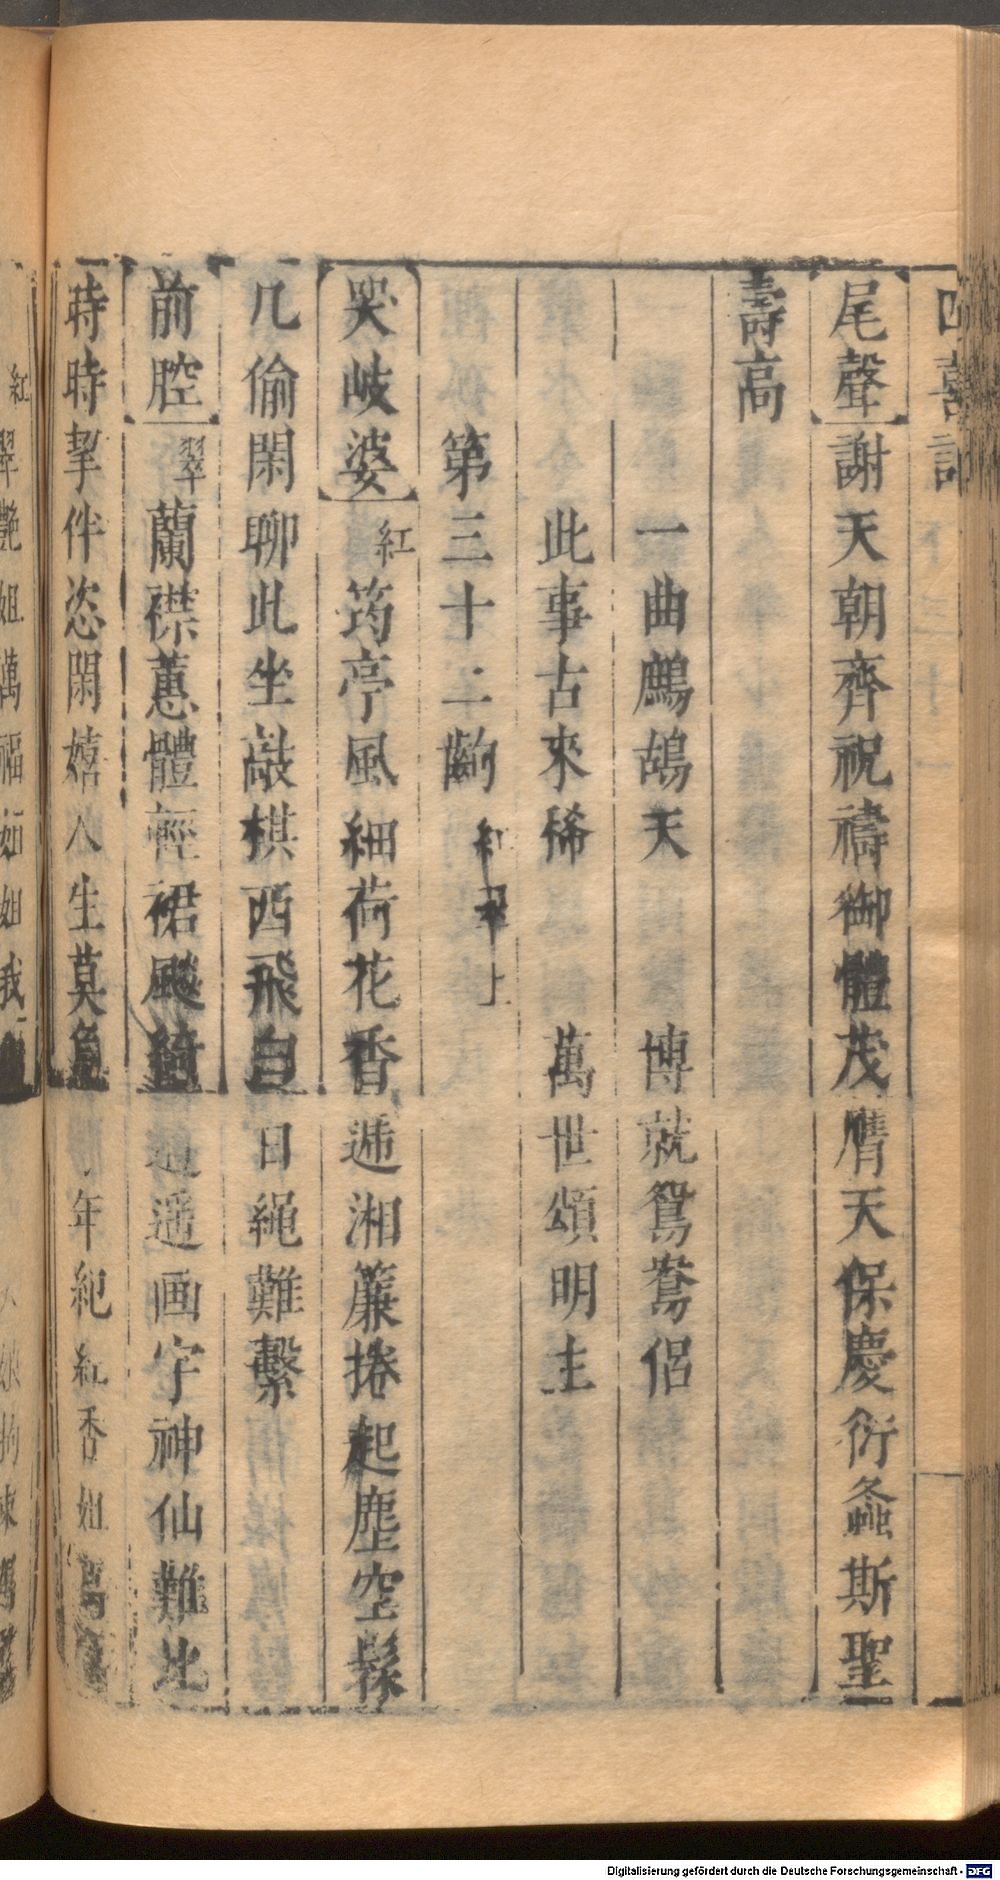 四喜記
尾聲謝天朝齊祝禱御體茂膺天保慶衍螽斯聖
壽高
一曲鷓鴣天 博就鴛鴦侶
此事古來稀 萬世頌明主
第三十二齣 紅翠上
哭岐婆 紅 筠亭風細荷花香遞湘簾捲起塵空髹
几偷閑聊此坐敲棋酉飛白日繩難繫
前腔 翠 蘭襟蕙體輕裙颺綺 遞画字神仙難比
時時挈伴恣閑嬉人生莫負 年紀紅香姐萬
紅翠艶姐萬福如姐我
Digitalisierung gefördert durch die Deutsche Forschungsgemeinschaft - DFG